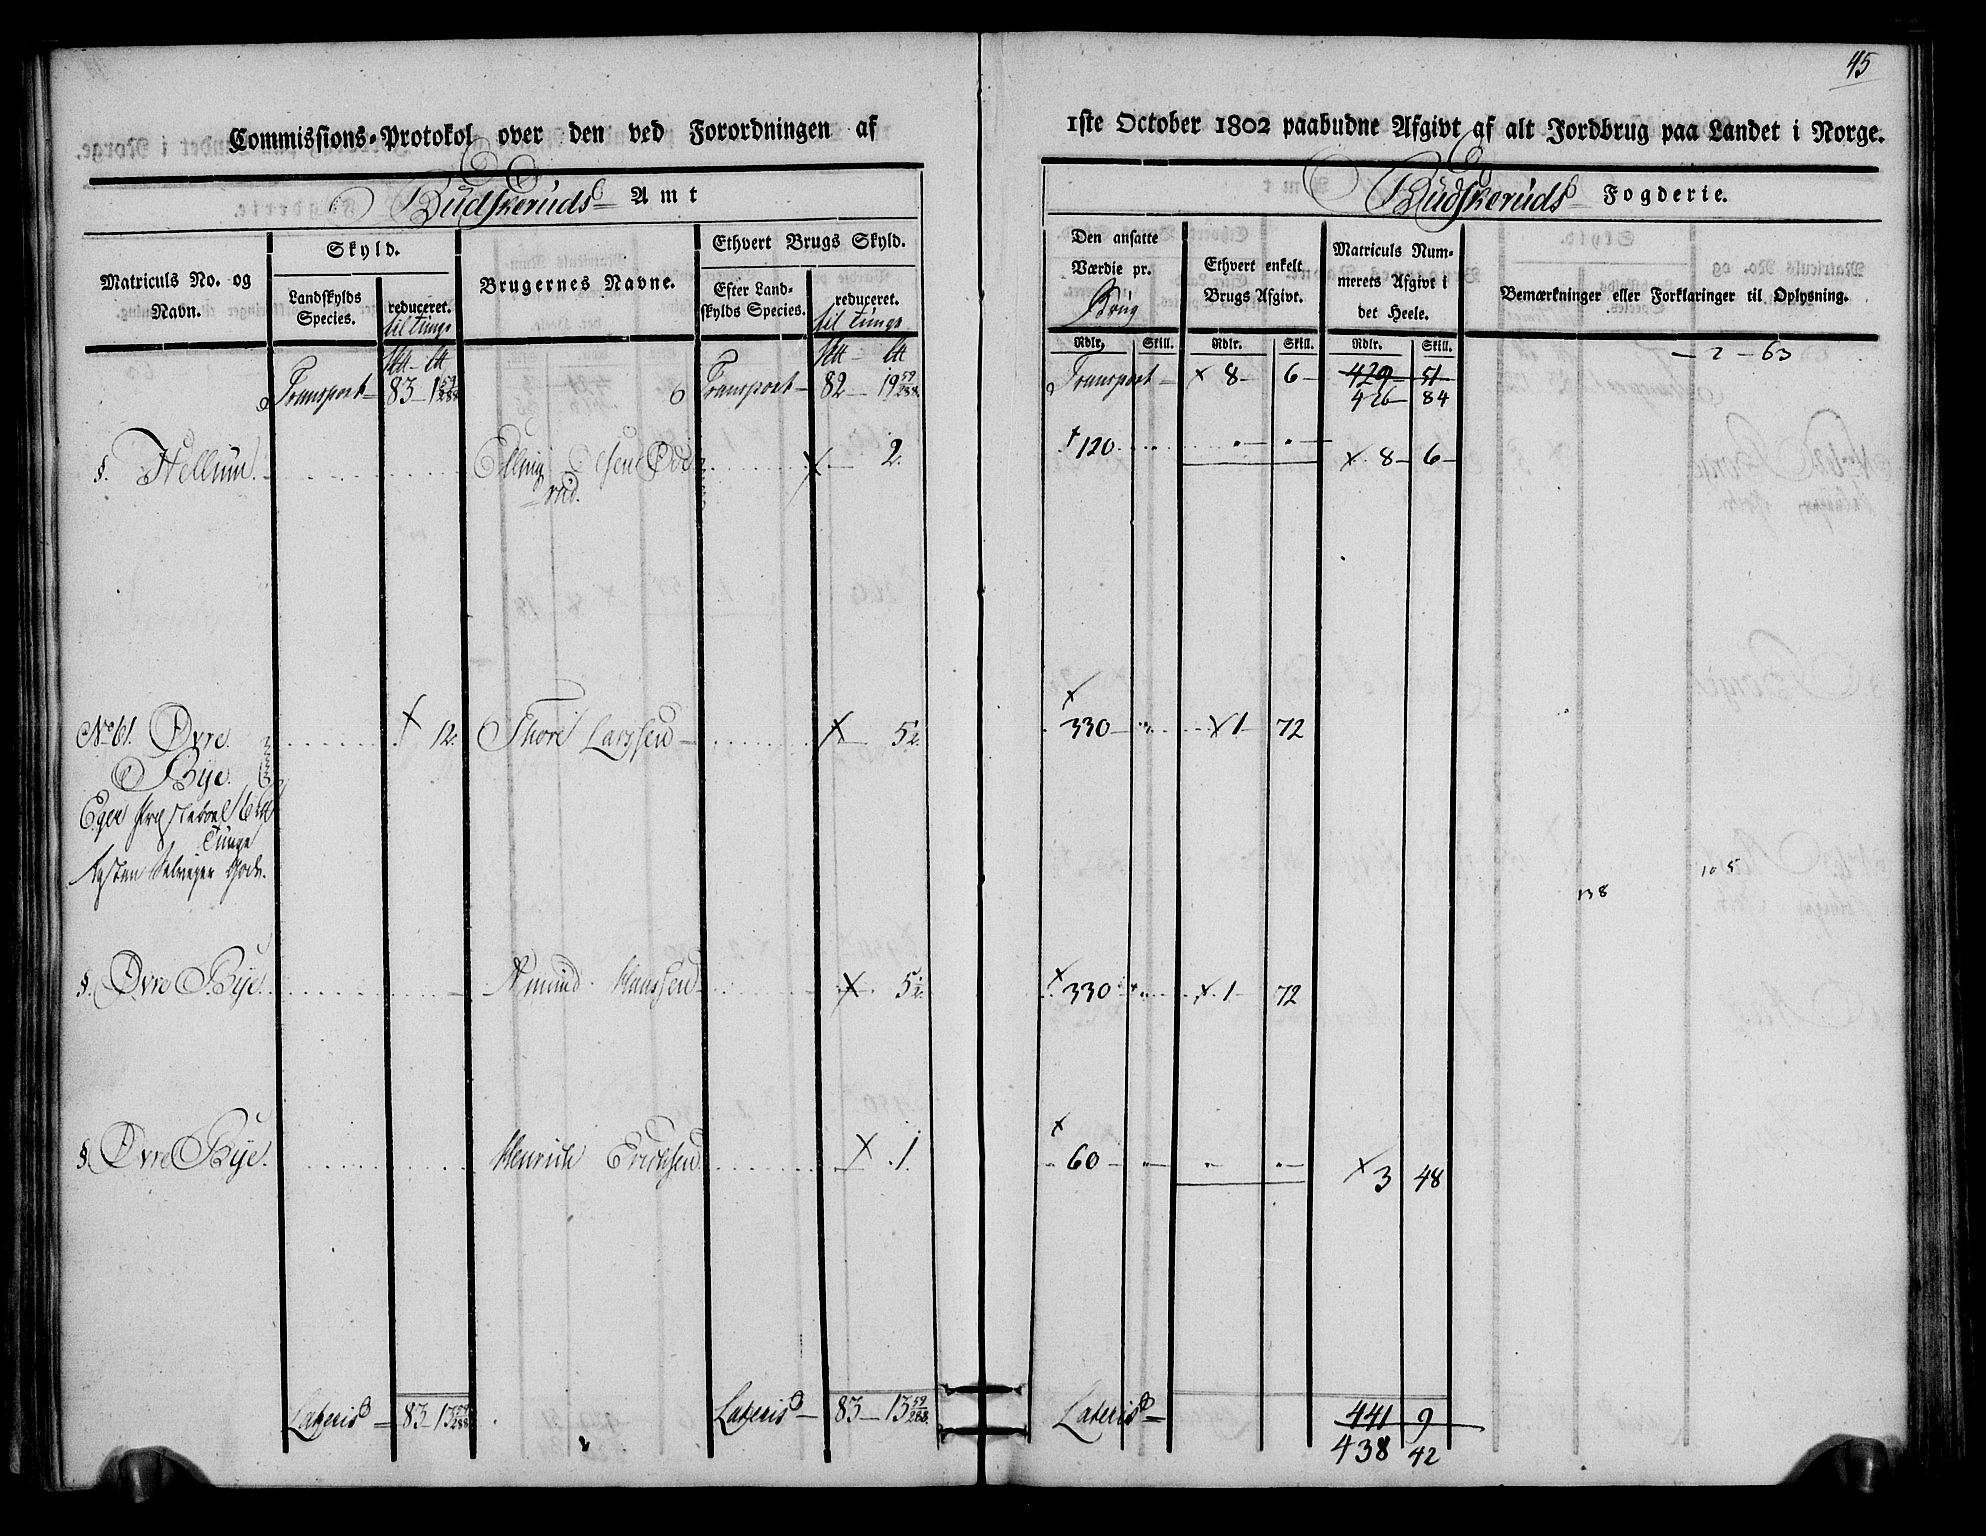 45
Commissions-Protokol over den ved Forordningen af
1ste October 1802 paabudne Afgivt af alt Jordbrug paa Landet i Norge.
Budskeruds Amt
Budskeruds Fogderie.
Matriculs No. og Navn.
Skyld.
Landskylds Species.
reduceret. til Tunge
Brugernes Navne.
Ethvert Brugs Skyld.
Efter Landskylds Species.
reduceret. til Tunge
Den ansatte Værdie pr. Brug
Ethvert enkelt Brugs Afgivt.
Matriculs Nummerets Afgivt i det Heele.
Bemærkninger eller Forklaringer til Oplysning.
Rdlr. Skill. Rdlr. Skill. Rdlr. Skill.
- 2 - 63
Transport 83 - 1 59/288 Transport 82 - 19 59/288 Transport x 8 - 6 - 429 - 51
426 - 84
§. Hellum. Elling Olsen x 2. x 120 x 8 - 6 -
No 61. Øvre x 12. Thore Larssen x 5½ x 330 x 1 72
Bye.
Eger Præsteboel
Tunge
138 105
§. Øvre Bye. Amund Hanssen x 5½ x 330 x 1 72
§. Øvre Bye. Henrich Erichsen x 1. x 60 x 3 48
Lateris 83 - 13 59/288 Lateris 83 - 13 59/288 Lateris 441 9
438 42